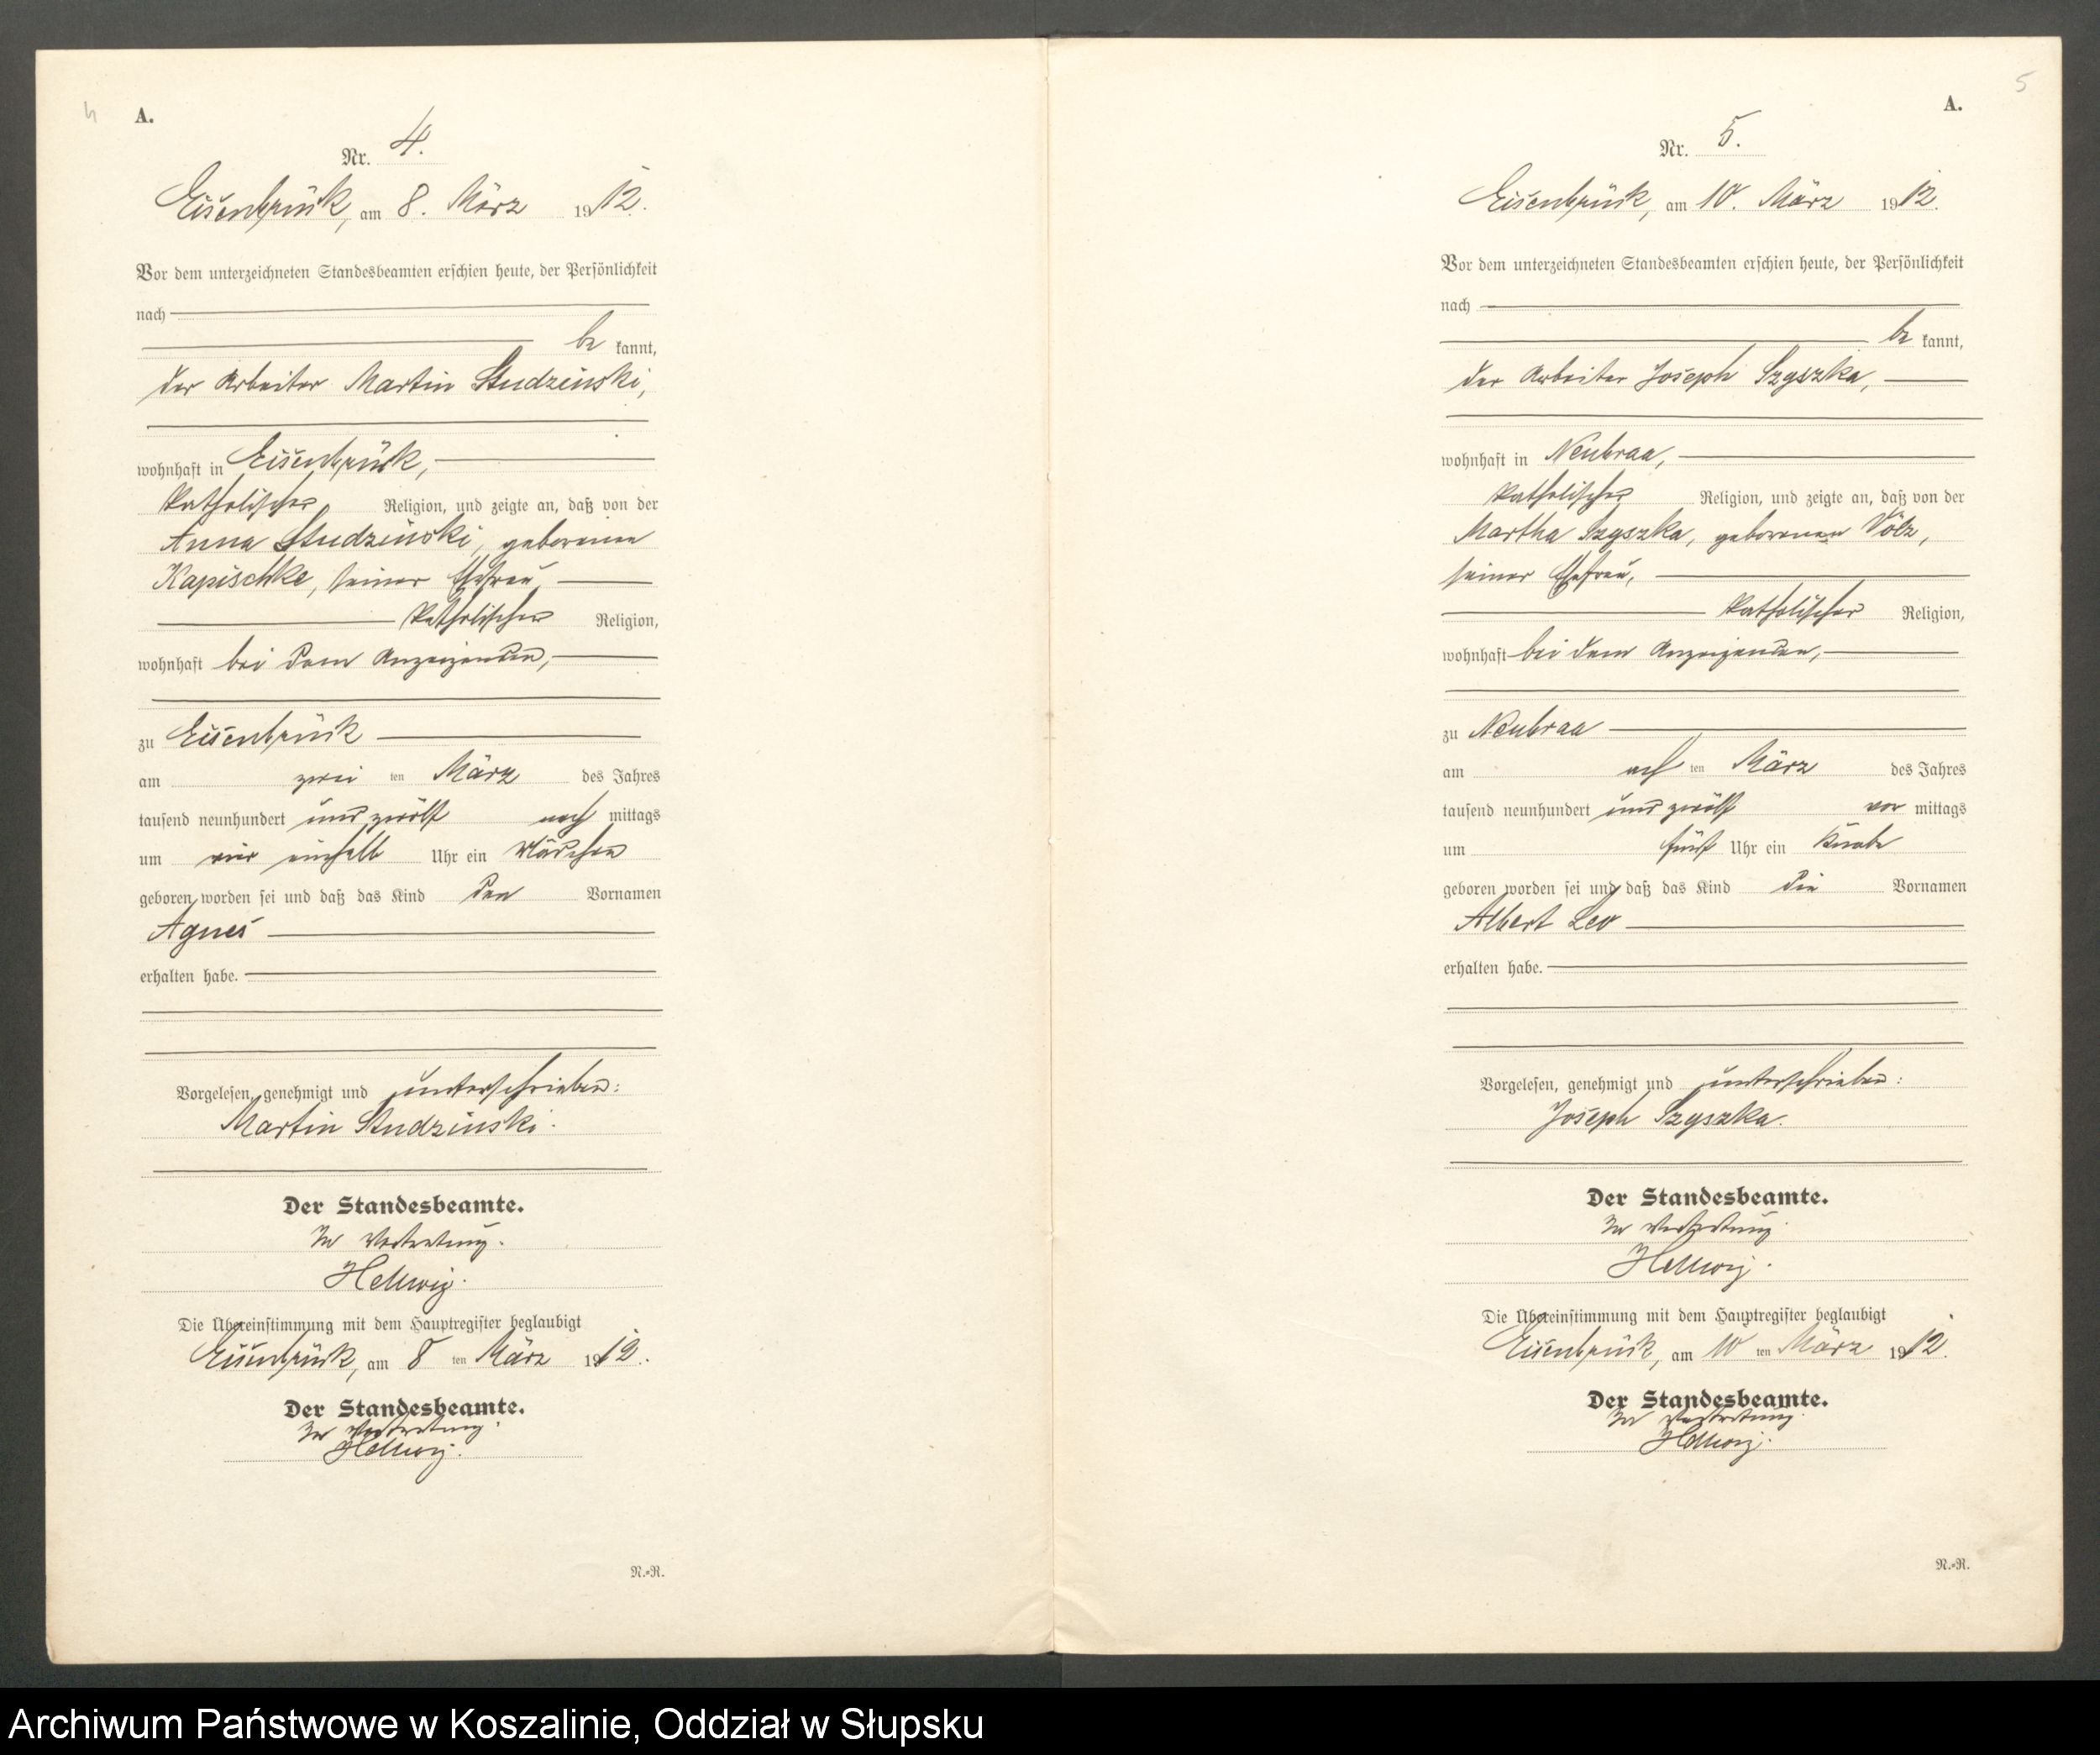 4
A.
Nr. 4.
Eisenbrück, am 8. März 1912.
Vor dem unterzeichneten Standesbeamten erschien heute, der Persönlichkeit
nach
be kannt,
der Arbeiter Martin Studzinski,
wohnhaft in Eisenbrück,
katholischer Religion, und zeigte an, daß von der
Anna Studzinski, geborenen
Kapischke, seiner Ehefrau,
katholischer Religion,
wohnhaft bei dem Anzeigenden,
zu Eisenbrück
am zwei ten März des Jahres
tausend neunhundert und zwölf nach mittags
um vier einhalb Uhr ein Mädchen
geboren worden sei und daß das Kind den Vornamen
Agnes
erhalten habe.
Vorgelesen, genehmigt und unterschrieben:
Martin Studzinski.
Der Standesbeamte.
In Vertretung.
Hellwig.
Die Übereinstimmung mit dem Hauptregister beglaubigt
Eisenbrück, am 8 ten März 1912.
Der Standesbeamte.
In Vertretung.
Hellwig.
N.-R.
5
A.
Nr. 5.
Eisenbrück, am 10. März 1912.
Vor dem unterzeichneten Standesbeamten erschien heute, der Persönlichkeit
nach
be kannt,
der Arbeiter Joseph Szyszka,
wohnhaft in Neubraa,
katholischer Religion, und zeigte an, daß von der
Martha Szyszka, geborenen Völz,
seiner Ehefrau,
katholischer Religion,
wohnhaft bei dem Anzeigenden,
zu Neubraa
am ach ten März des Jahres
tausend neunhundert und zwölf vor mittags
um fünf Uhr ein Knabe
geboren worden sei und daß das Kind die Vornamen
Albert Leo
erhalten habe.
Vorgelesen, genehmigt und unterschrieben:
Joseph Szyszka.
Der Standesbeamte.
In Vertretung.
Hellwig.
Die Übereinstimmung mit dem Hauptregister beglaubigt
Eisenbrück, am 10 ten März 1912.
Der Standesbeamte.
In Vertretung.
Hellwig.
N.-R.
Archiwum Państwowe w Koszalinie, Oddział w Słupsku